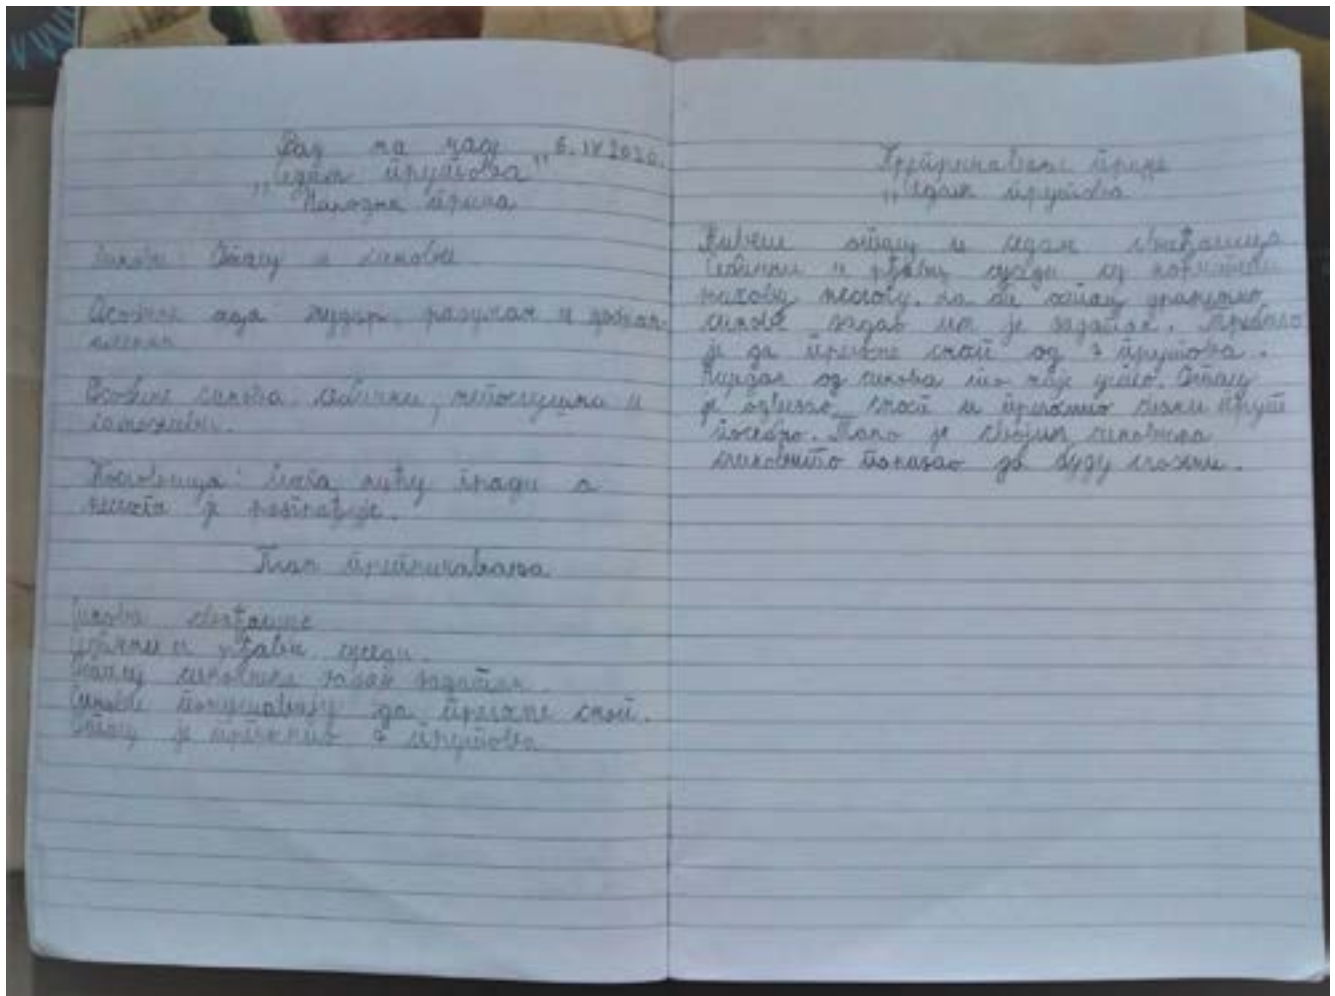 Рад на часу 6. IV 2020.
„Седам прутова"
Народна прича
Ликови: Отац и синови
Особине оца: мудар, разуман и
Особине синова: себични, непослушни и
Пословица: Слога кућу гради а
неслога је разграђује.
План препричавања
Синови свађалице
Себични и рђави суседи.
Отац синовима задаје задатак.
Синови покушавају да преломе сноп.
Отац је преломио 7 прутова
Препричавање приче
„Седам прутова
Живели отац и седам свађалица
Себични и рђави суседи су
њихову неслогу. отац
синове задао им је задатак. Требало
је да преломе сноп од 7 прутова.
од синова то није успео. Отац
је одвезао сноп и преломио сваки прут
посебно. Тако је својим синовима
показао да буду сложни.